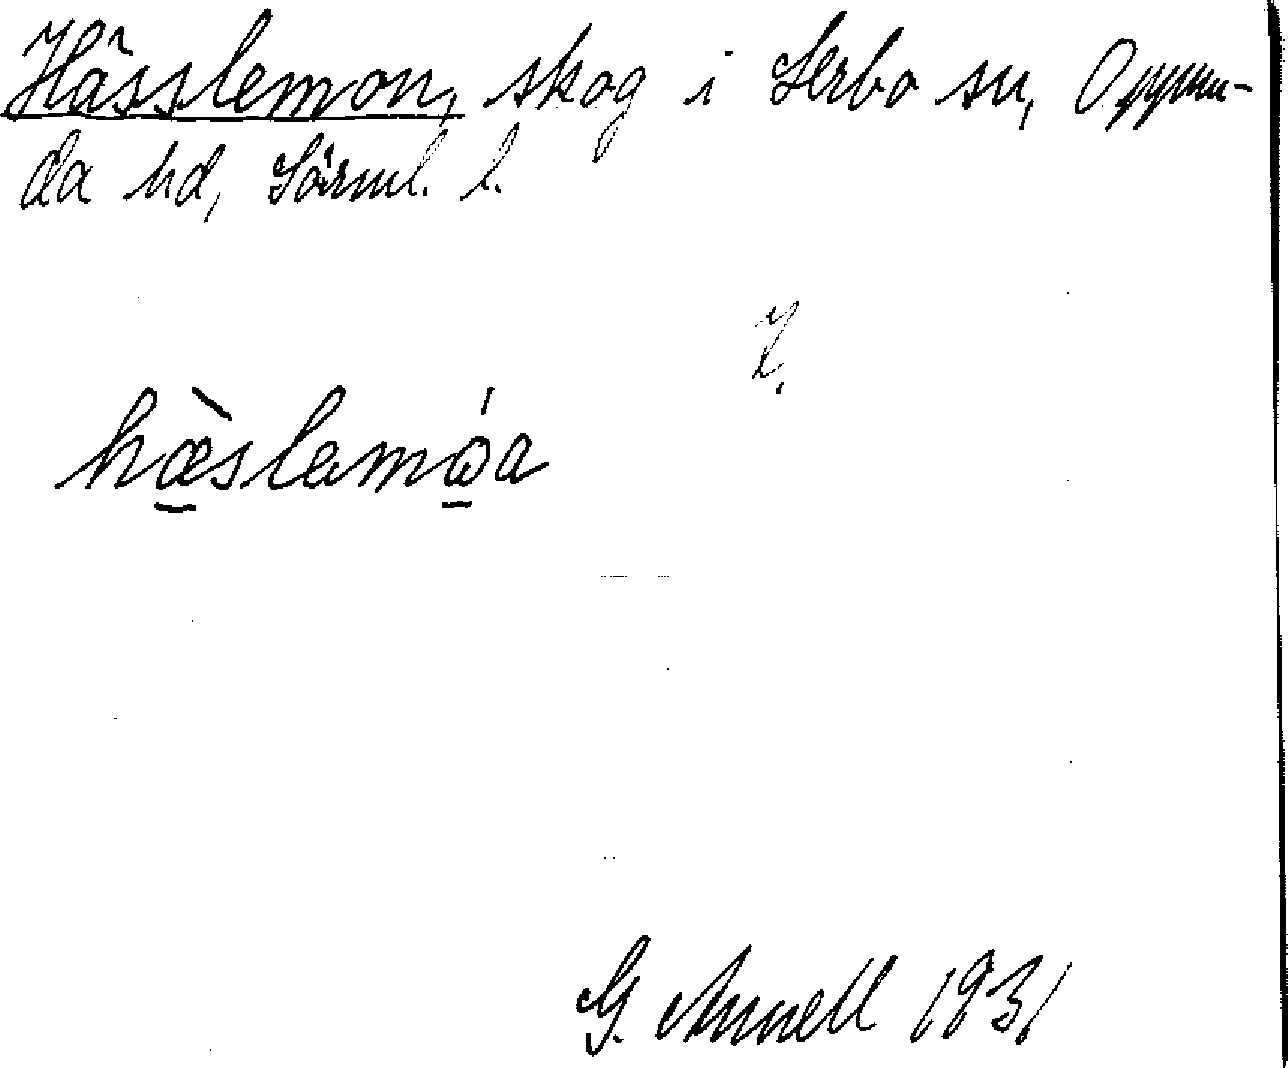 Hässlemon, skog i Lerbo sn, Oppun-
da hd, Sörml. l.
hæslamωa
G. Annell 1931